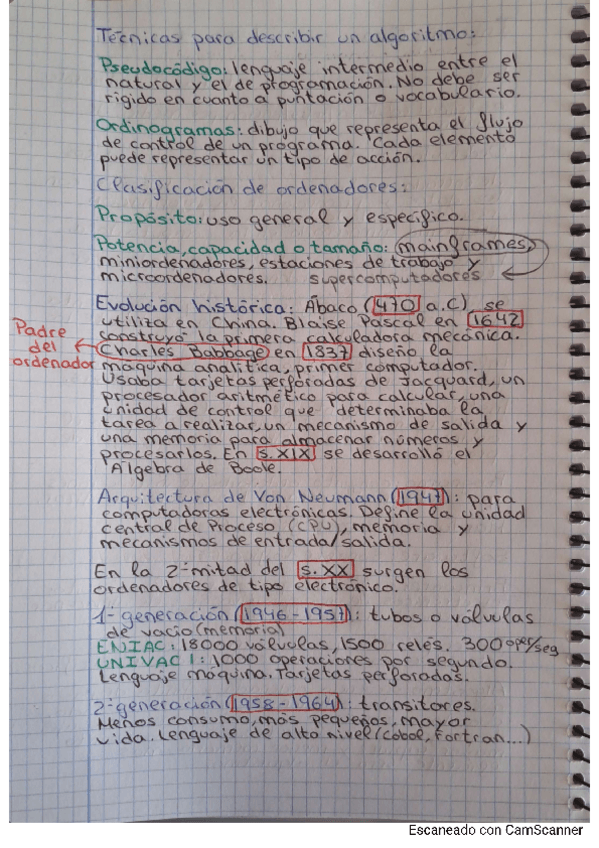 Técnicas para describir un algoritmo:
Pseudocódigo: lenguaje intermedio entre el
natural y el de programación. No debe ser
rígido en cuanto a puntación o vocabulario.
Ordinogramas: dibujo que representa el flujo
de control de un programa. Cada elemento
puede representar un tipo de acción.
Clasificación de ordenadores:
Propósito: uso general y específico.
Potencia, capacidad o tamaño: (mainframes,
miniordenadores, estaciones de trabajo y
microordenadores. supercomputadores
Evolución histórica: Ábaco (470 a.C), se
utiliza en China. Blaise Pascal en 1642
construyó la primera calculadora mecánica.
Padre del ordenador
Charles Babbage en 1837 diseño la
maquina analítica, primer computador.
Usaba tarjetas perforadas de Jacquard, un
procesador aritmético para calcular, una
unidad de control que determinaba la
tarea a realizar, un mecanismo de salida y
una memoria para almacenar números y
procesarlos. En s.XIX se desarrolló el
Álgebra de Boole.
Arquitectura de Von Neumann (1947): para
computadoras electrónicas. Define la unidad
central de Proceso (CPU), memoria y
mecanismos de entrada/salida.
En la 2ª mitad del s.XX surgen los
ordenadores de tipo electrónico.
1ª generación (1946-1957): tubos o válvulas
de vacío (memoria)
ENIAC: 18000 válvulas, 1500 relés. 300 oper/seg
UNIVAC 1: 1000 operaciones por segundo.
Lenguaje maquina. Tarjetas perforadas.
2ª generación (1958-1964): transitores.
Menos consumo, más pequeños, mayor
vida. Lenguaje de alto nivel (cobol, Fortran...)
Escaneado con CamScanner